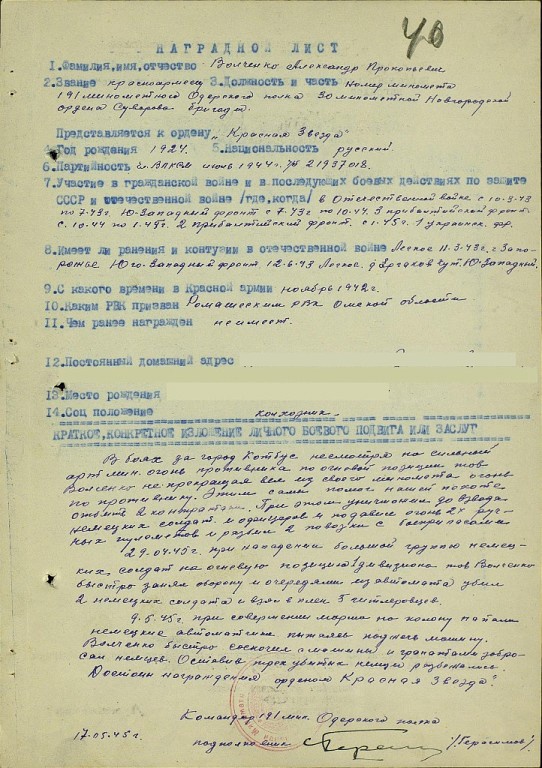 40
НАГРАДНОЙ ЛИСТ
1.Фамилия,имя,отчество Волченко Александр Прокопьевич
2.Звание красноармеец 3.Должность и часть номер миномета
191 минометного Одерского полка 30 минометной Новгородской
ордена Суворова бригады.
Представляется к ордену „Красная Звезда"
4.Год рождения 1924. 5.Национальность русский.
6.Партийность чл. ВЛКСМ июнь 1944 г. № 21937018.
7.Участие в гражданской войне и в последующих боевых действиях по защите
СССР и отечественной войне /где,когда/ в Отечественной войне с 10.3.43
по 7.43г. Ю-Западный фронт с 7.43г по 10.44. 3 прибалтийский фронт.
с. 10.44 по 1.45г. 2 прибалтийский фронт. с 1.45г. 1 украинск. фр.
8.Имеет ли ранения и контузии в отечественной войне Легкое 11.3.43г. г Запо-
рожье Юго-Западный фронт. 12.6.43 Легкое. Ю-Западный.
9.С какого времени в Красной армии ноябрь 1942г.
10.Каким РВК призван РВК Омской области
11.Чем ранее награжден не имеет.
12.Постоянный домашний адрес
13.Место рождения
14.Соц положение колхозник.
КРАТКОЕ,КОНКРЕТНОЕ ИЗЛОЖЕНИЕ ЛИЧНОГО БОЕВОГО ПОДВИГА ИЛИ ЗАСЛУГ
В боях за город Котбус несмотря на сильный
арт. мин. огонь противника по огневой позиции тов
Волченко не прекращая вел из своего миномета огонь
по противнику. Этим самым помог нашей пехоте
отбить 2 контратаки. При этом уничтожил до взвода
немецких солдат и офицеров и подавил огонь 2х руч-
ных пулеметов и разбил 2 повозки с боеприпасами
29.04.45г. при нападении большой группы немец-
ких солдат на огневую позицию дивизиона тов Волченко
быстро занял оборону и очередями из автомата убил
2 немецких солдата и взял в плен 3 гитлеровцев.
9.5.45г. при совершении марша на колону напали
немецкие автоматчики пытаясь поджечь машину.
Волченко быстро соскочил с машины и гранатами забро-
сал немцев. Оставив трех убитыми немцы разбежались
Достоин награждения орденом „Красная Звезда".
Командир 191 мин. Одерского полка
17.05.45г. подполковник /Герасимов/